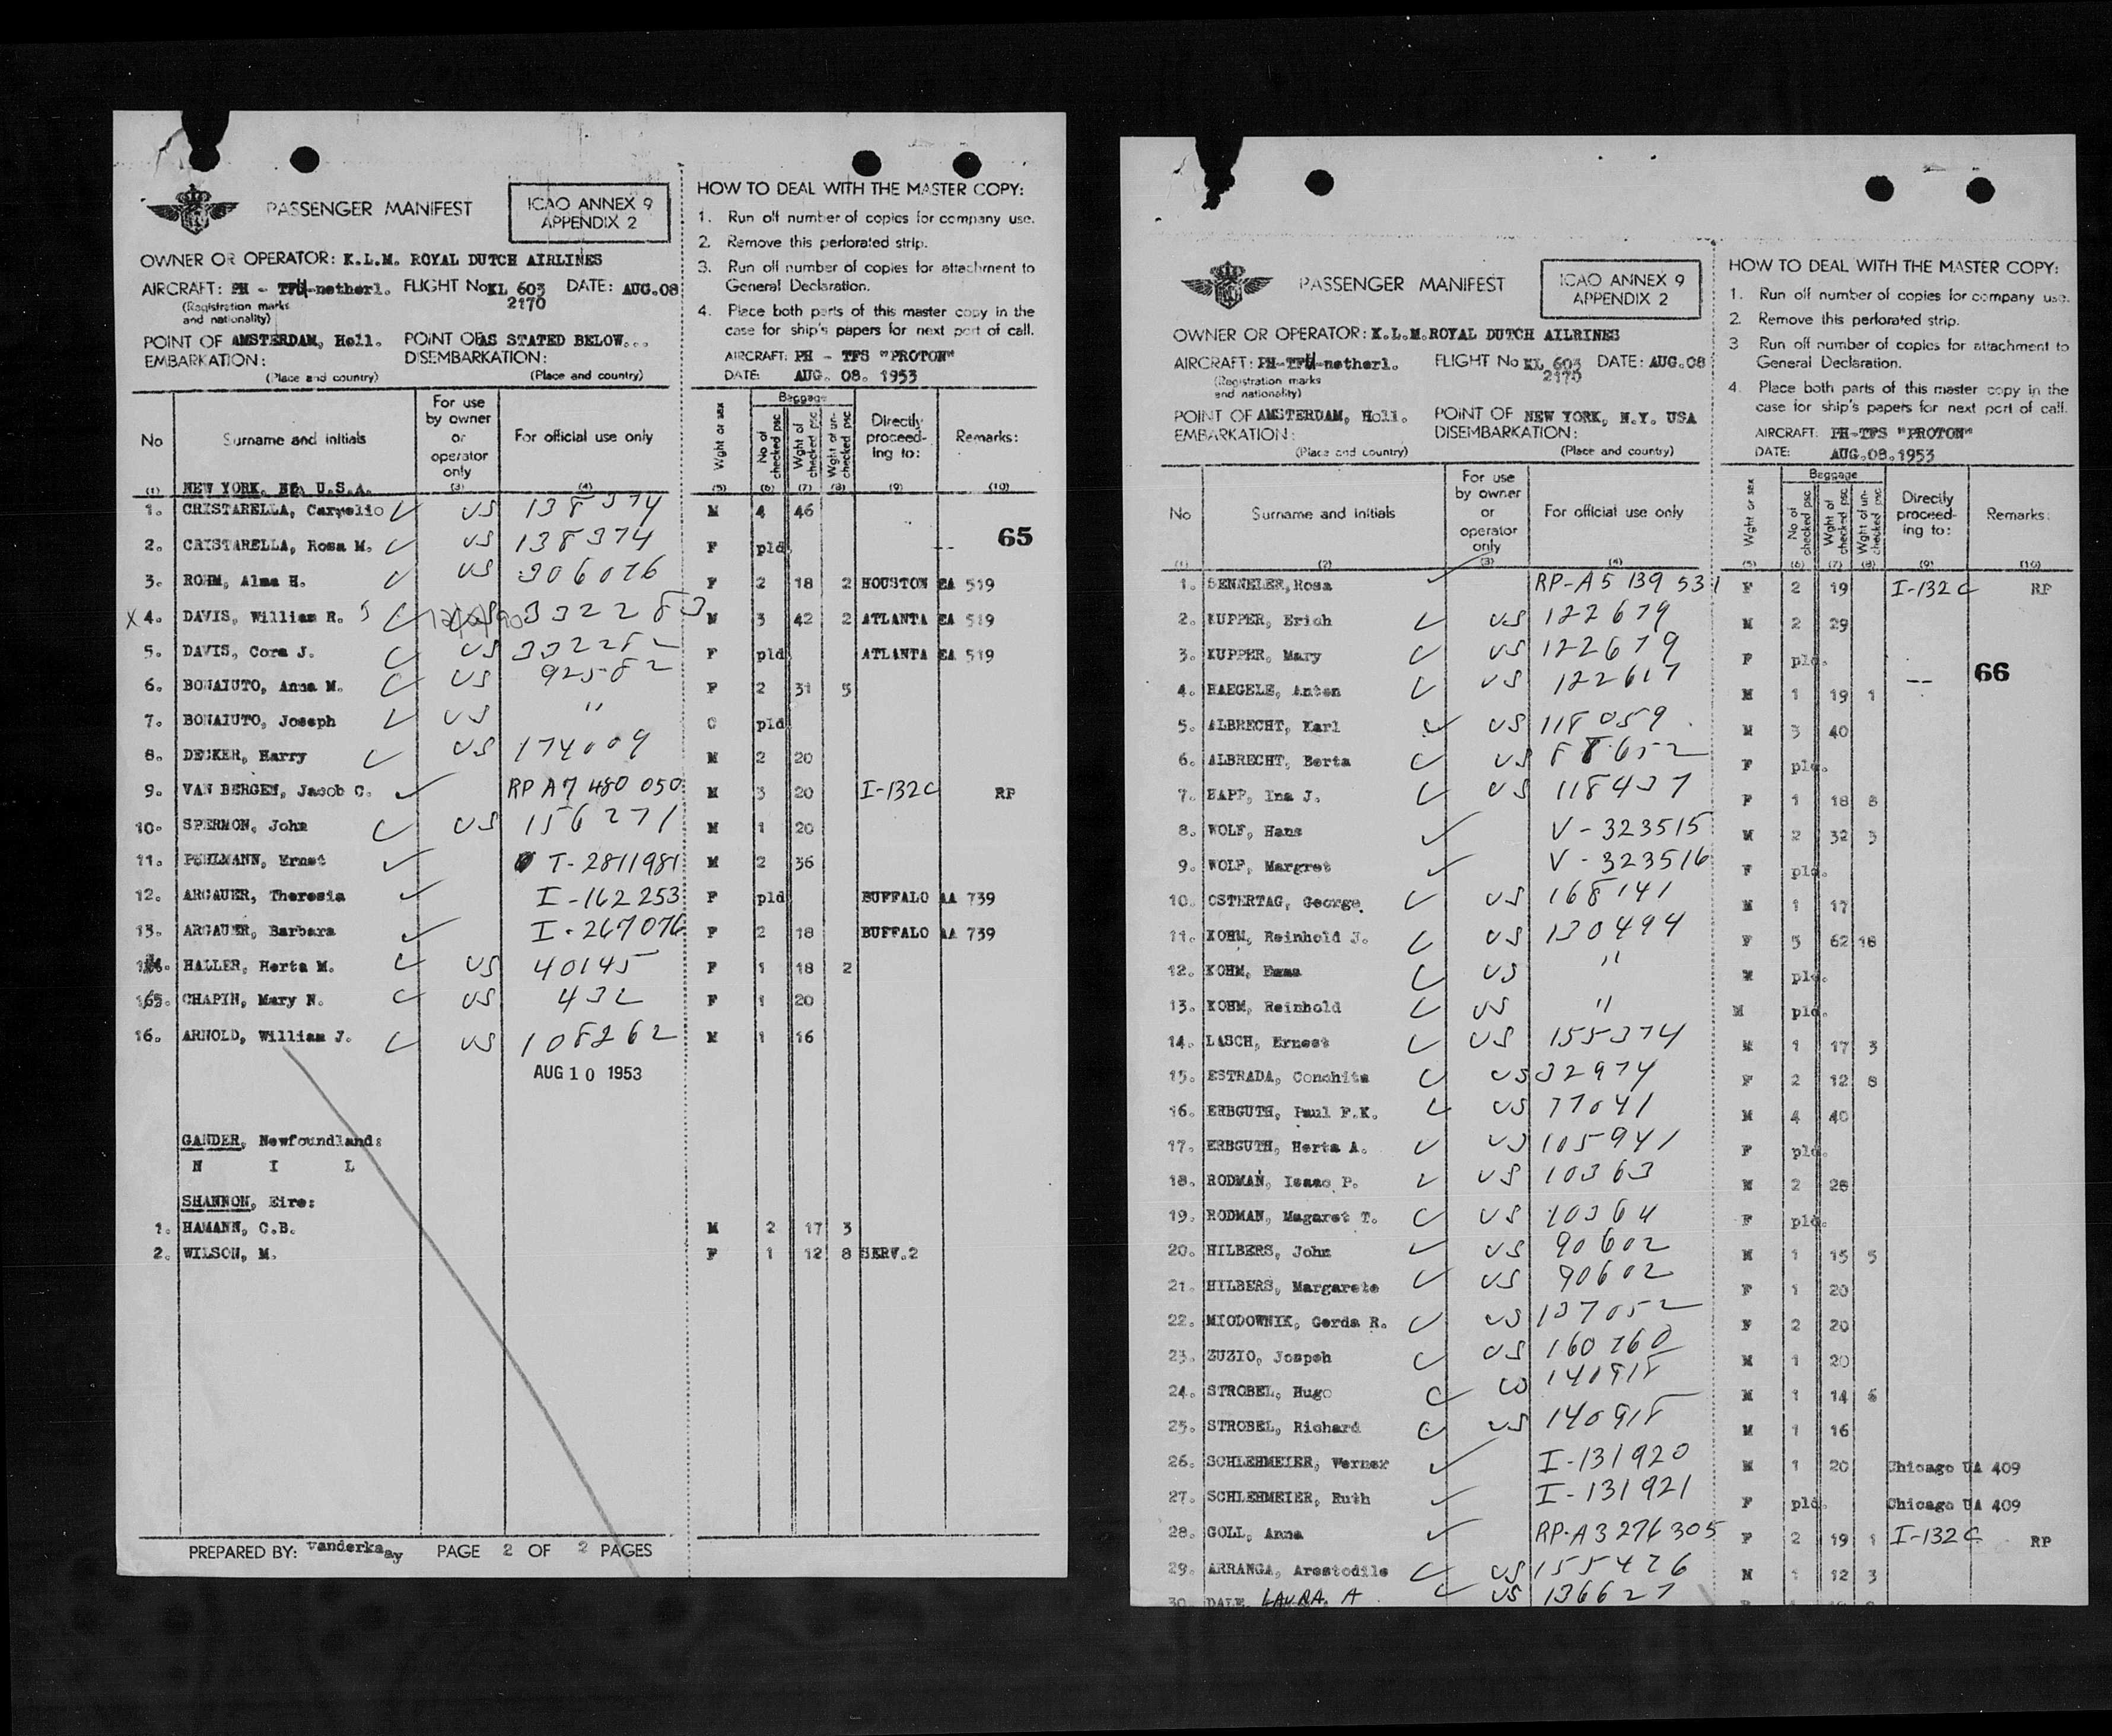 PASSENGER MANIFEST
ICAO ANNEX 9
APPENDIX 2
OWNER OR OPERATOR: K.L.M. ROYAL DUTCH AIRLINES
AIRCRAFT: PH - TFH-netherl. FLIGHT No KL 603 DATE: AUG.08
(Registration marks and nationality) 2170
POINT OF AMSTERDAM, Holl. POINT OF AS STATED BELOW...
EMBARKATION: DISEMBARKATION:
(Place and country) (Place and country)
HOW TO DEAL WITH THE MASTER COPY:
1. Run off number of copies for company use.
2. Remove this perforated strip.
3. Run off number of copies for attachment to
General Declaration.
4. Place both parts of this master copy in the
case for ship's papers for next port of call.
AIRCRAFT: PH - TFS "PROTON"
DATE: AUG. 08. 1953
No Surname and initials For use by owner or operator only For official use only Wght or sex Baggage No of checked psc Wght of checked psc Wght of un-checked psc Directly proceed-ing to: Remarks:
(1) (3) (4) (5) (6) (7) (8) (9) (10)
NEW YORK, U.S.A.
1. CRISTARELLA, Carmelio US 138374 M 4 46
65
2. CRISTARELLA, Rosa M. US 138374 F pld
3. ROHM, Alma H. US 306076 F 2 18 2 HOUSTON EA 519
X 4. DAVIS, William R. 332283 M 3 42 2 ATLANTA EA 519
5. DAVIS, Cora J. US 332282 F pld ATLANTA EA 519
6. BONAIUTO, Anna M. US 92582 F 2 31 5
7. BONAIUTO, Joseph US " C pld
8. DECKER, Harry US 174009 M 2 20
9. VAN BERGEN, Jacob C. RP A7 480 050 M 3 20 I-132C RP
10. SPERMON, John US 156271 M 1 20
11. POHLMANN, Ernst T-2811981 M 2 36
12. ARGAUER, Theresia I-162253 F pld BUFFALO AA 739
13. ARGAUER, Barbara I-267076 F 2 18 BUFFALO AA 739
14. HALLER, Herta M. US 40145 F 1 18 2
15. CHAPIN, Mary N. US 432 F 1 20
16. ARNOLD, William J. US 108262 M 1 16
AUG 10 1953
GANDER, Newfoundland:
N I L
SHANNON, Eire:
1. HAMANN, C.B. M 2 17 3
2. WILSON, M. F 1 12 8 SERV.2
PREPARED BY: Vanderkaay PAGE 2 OF 2 PAGES
PASSENGER MANIFEST
ICAO ANNEX 9
APPENDIX 2
OWNER OR OPERATOR: K.L.M.ROYAL DUTCH AILRINES
AIRCRAFT: PH-TFH-netherl. FLIGHT No KL 603 DATE: AUG.08
(Registration marks and nationality) 2170
POINT OF AMSTERDAM, Holl. POINT OF NEW YORK, N.Y. USA
EMBARKATION: DISEMBARKATION:
(Place and country) (Place and country)
HOW TO DEAL WITH THE MASTER COPY:
1. Run off number of copies for company use.
2. Remove this perforated strip.
3 Run off number of copies for attachment to
General Declaration.
4. Place both parts of this master copy in the
case for ship's papers for next port of call.
AIRCRAFT: PH-TFS "PROTON"
DATE: AUG.08.1953
No Surname and initials For use by owner or operator only For official use only Wght or sex Baggage No of checked psc Wght of checked psc Wght of un-checked psc Directly proceed-ing to: Remarks:
(1) (2) (3) (4) (5) (6) (7) (8) (9) (10)
1. SENNELER, Rosa RP-A5 139 531 F 2 19 I-132C RP
2. KUPPER, Erich US 122679 M 2 29
3. KUPPER, Mary US 122679 F pld.
66
4. HAEGELE, Anton US 122617 M 1 19 1
5. ALBRECHT, Karl US 118059 M 3 40
6. ALBRECHT, Berta US 88652 F pld.
7. HAPP, Ina J. US 118437 F 1 18 8
8. WOLF, Hans V-323515 M 2 32 3
9. WOLF, Margret V-323516 F pld.
10. OSTERTAG, George US 168141 M 1 17
11. KOHM, Reinhold J. US 130494 F 5 62 18
12. KOHM, Emma US " M pld.
13. KOHM, Reinhold US " M pld.
14. LASCH, Ernest US 155374 M 1 17 3
15. ESTRADA, Conchita US 32974 F 2 12 8
16. ERBGUTH, Paul F.K. US 77041 M 4 40
17. ERBGUTH, Herta A. US 105941 F pld.
18. RODMAN, Isaac P. US 10363 M 2 28
19. RODMAN, Magaret T. US 10364 F pld.
20. HILBERS, John US 90602 M 1 15 5
21. HILBERS, Margarete US 90602 F 1 20
22. MIODOWNIK, Gerda R. US 137052 F 2 20
23. ZUZIO, Jospeh US 160760 M 1 20
24. STROBEL, Hugo US 140918 M 1 14 6
25. STROBEL, Richard US 140918 M 1 16
26. SCHLEHMEIER, Werner I-131920 M 1 20 Chicago UA 409
27. SCHLEHMEIER, Ruth I-131921 F pld. Chicago UA 409
28. GOLL, Anna RP-A3 276 305 F 2 19 1 I-132C RP
29. ARRANGA, Arestodile US 155426 M 1 12 3
30. DALE, LAURA A US 136627